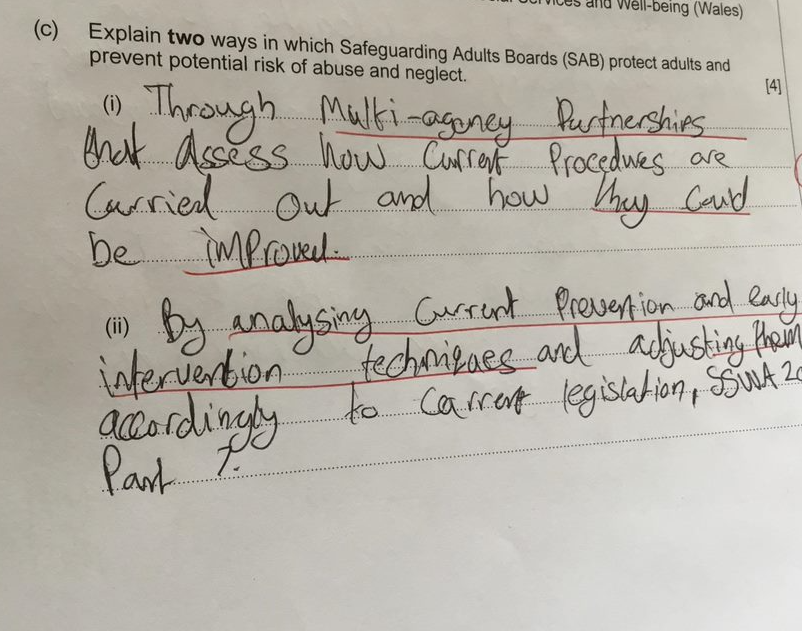 Services and Well-being (Wales)
(c) Explain two ways in which Safeguarding Adults Boards (SAB) protect adults and
prevent potential risk of abuse and neglect.
[4]
(i) Through Multi-agency Partnerships
that assess how current Procedures are
carried out and how they could
be improved.
(ii) By analysing current Prevention and early
intervention techniques and adjusting them
accordingly to current legislation, SSWA 20
Part 7.